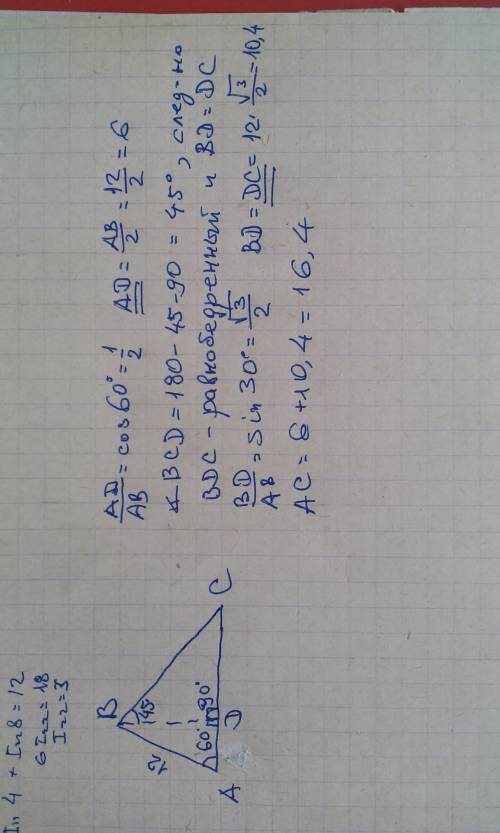 I₁₁ 4 + I₂₂8 = 12
6 I₂₂ = 18
I₂₂ = 3
B
45
12
60°
90°
A
D
C
AD/AB = cos 60° = 1/2 AD = AB/2 = 12/2 = 6
∢ BCD = 180 - 45 - 90 = 45°, след-но
BDC - равнобедренный и BD = DC
BD/AB = sin 30° = √3/2 BD = DC = 12 · √3/2 = 10,4
AC = 6 + 10,4 = 16,4